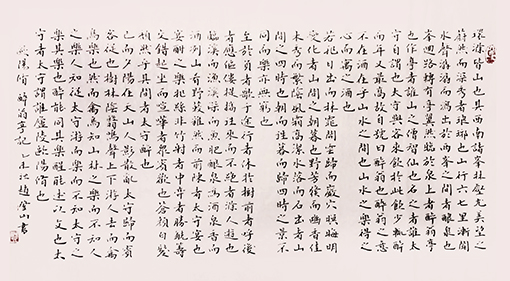 環滁皆山也其西南諸峯林壑尤美望之
蔚然而深秀者琅邪也山行六七里漸聞
水聲潺潺而瀉出於兩峯之間者釀泉也
峯迴路轉有亭翼然臨於泉上者醉翁亭
也作亭者誰山之僧智仙也名之者誰太
守自謂也太守與客來飲於此飲少輒醉
而年又最高故自號曰醉翁也醉翁之意
不在酒在乎山水之間也山水之樂得之
心而寓之酒也
若夫日出而林霏開雲歸而巖穴暝晦明
變化者山間之朝暮也野芳發而幽香佳
木秀而繁陰風霜高潔水落而石出者山
間之四時也朝而往暮而歸四時之景不
同而樂亦無窮也
至於負者歌于途行者休於樹前者呼後
者應傴僂提攜往來而不絕者滁人遊也
臨溪而漁溪深而魚肥釀泉爲酒泉香而
酒洌山肴野蔌雜然而前陳者太守宴也
宴酣之樂非絲非竹射者中弈者勝觥籌
交錯起坐而諠譁者衆賓懽也蒼顏白髮
頹然乎其間者太守醉也
已而夕陽在山人影散亂太守歸而賓
客從也樹林陰翳鳴聲上下遊人去而禽
鳥樂也然而禽鳥知山林之樂而不知人
之樂人知從太守遊而樂而不知太守之
樂其樂也醉能同其樂醒能述以文也太
守者太守謂誰廬陵歐陽修也
歐陽修 醉翁亭記 乙未 趙 山書